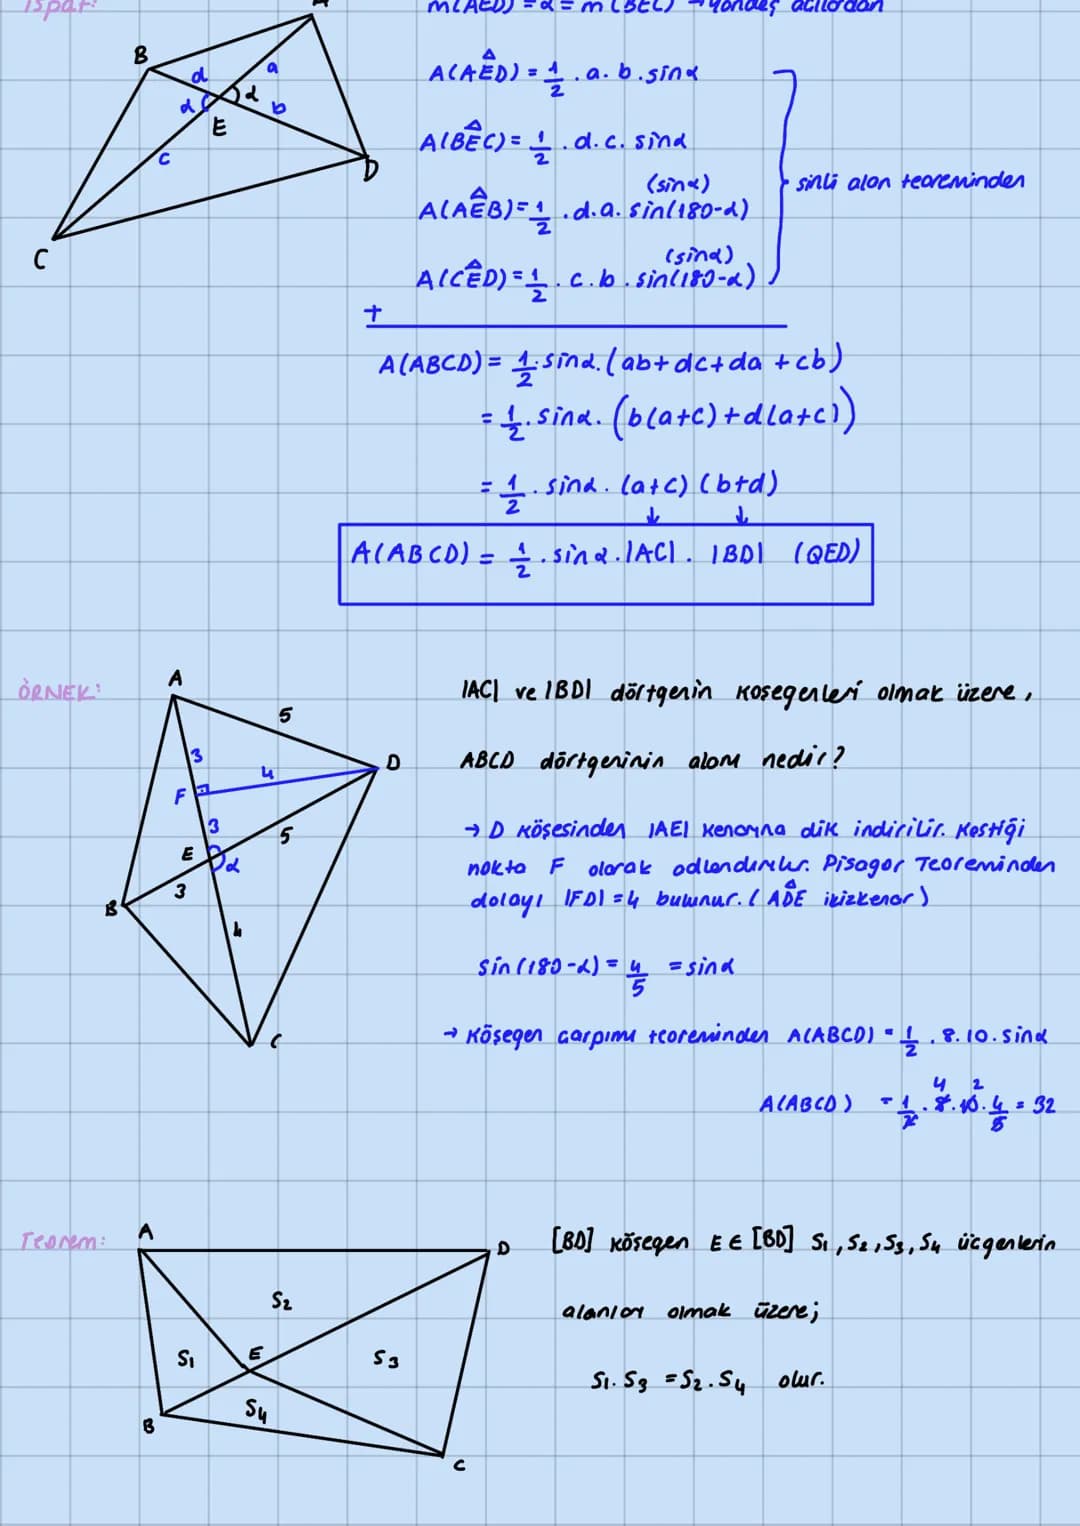 İspat:
m(AED) = α = m(BEC) → yöndeş açılardan
A
B
d
a
α
α
b
E
c
D
C
A(AED) = 1/2 . a. b . sinα
A(BEC) = 1/2 . d. c. sinα
(sinα)
A(AEB) = 1/2 . d. a. sin(180-α)
(sinα)
A(CED) = 1/2 . c. b . sin(180-α)
sinüs alan teoreminden
+
A(ABCD) = 1/2 . sinα. (ab + dc + da + cb)
= 1/2 . sinα. (b(a+c) + d(a+c))
= 1/2 . sinα. (a+c) (b+d)
↓ ↓
A(ABCD) = 1/2 . sinα. |AC| . |BD| (QED)
ÖRNEK:
A
5
3
F
4
D
3
5
E
α
3
B
4
C
|AC| ve |BD| dörtgenin köşegenleri olmak üzere,
ABCD dörtgeninin alanı nedir?
→ D köşesinden |AE| kenarına dik indirilir. Kestiği
nokta F olarak adlandırılır. Pisagor Teoreminden
dolayı |FD| = 4 bulunur. (ADE ikizkenar)
sin(180-α) = 4/5 = sinα
→ Köşegen çarpımı teoreminden A(ABCD) = 1/2 . 8. 10. sinα
4 2
A(ABCD) = 1/2 . 8. 10. 4/5 = 32
Teorem:
A
D
S₂
S₁
E
S₃
S₄
B
C
[BD] köşegen E ∈ [BD] S₁, S₂, S₃, S₄ üçgenlerin
alanları olmak üzere;
S₁. S₃ = S₂. S₄ olur.